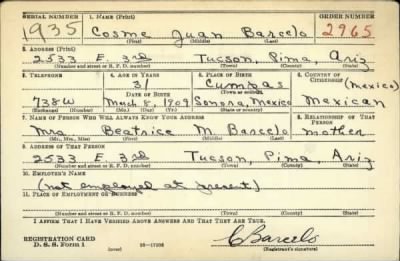 SERIAL NUMBER 1. NAME (Print) ORDER NUMBER
1935 Cosme Juan Barcelo 2965
(First) (Middle) (Last)
2. ADDRESS (Print)
2533 E. 3rd Tucson, Pima, Ariz
(Number and street or R. F. D. number) (Town) (County) (State)
3. TELEPHONE 4. AGE IN YEARS 5. PLACE OF BIRTH 6. COUNTRY OF CITIZENSHIP
31 Cumpas (Mexico)
DATE OF BIRTH (Town or county)
738W March 8, 1909 Sonora, Mexico Mexican
(Exchange) (Number) (Mo.) (Day) (Yr.) (State or country)
7. NAME OF PERSON WHO WILL ALWAYS KNOW YOUR ADDRESS 8. RELATIONSHIP OF THAT PERSON
Mrs Beatrice M. Barcelo mother
(Mr., Mrs., Miss) (First) (Middle) (Last)
9. ADDRESS OF THAT PERSON
2533 E. 3rd Tucson, Pima, Ariz
(Number and street or R. F. D. number) (Town) (County) (State)
10. EMPLOYER'S NAME
(not employed at present)
11. PLACE OF EMPLOYMENT OR BUSINESS
(Number and street or R. F. D. number) (Town) (County) (State)
I AFFIRM THAT I HAVE VERIFIED ABOVE ANSWERS AND THAT THEY ARE TRUE.
REGISTRATION CARD
D. S. S. Form 1 C Barcelo
(Registrant's signature)